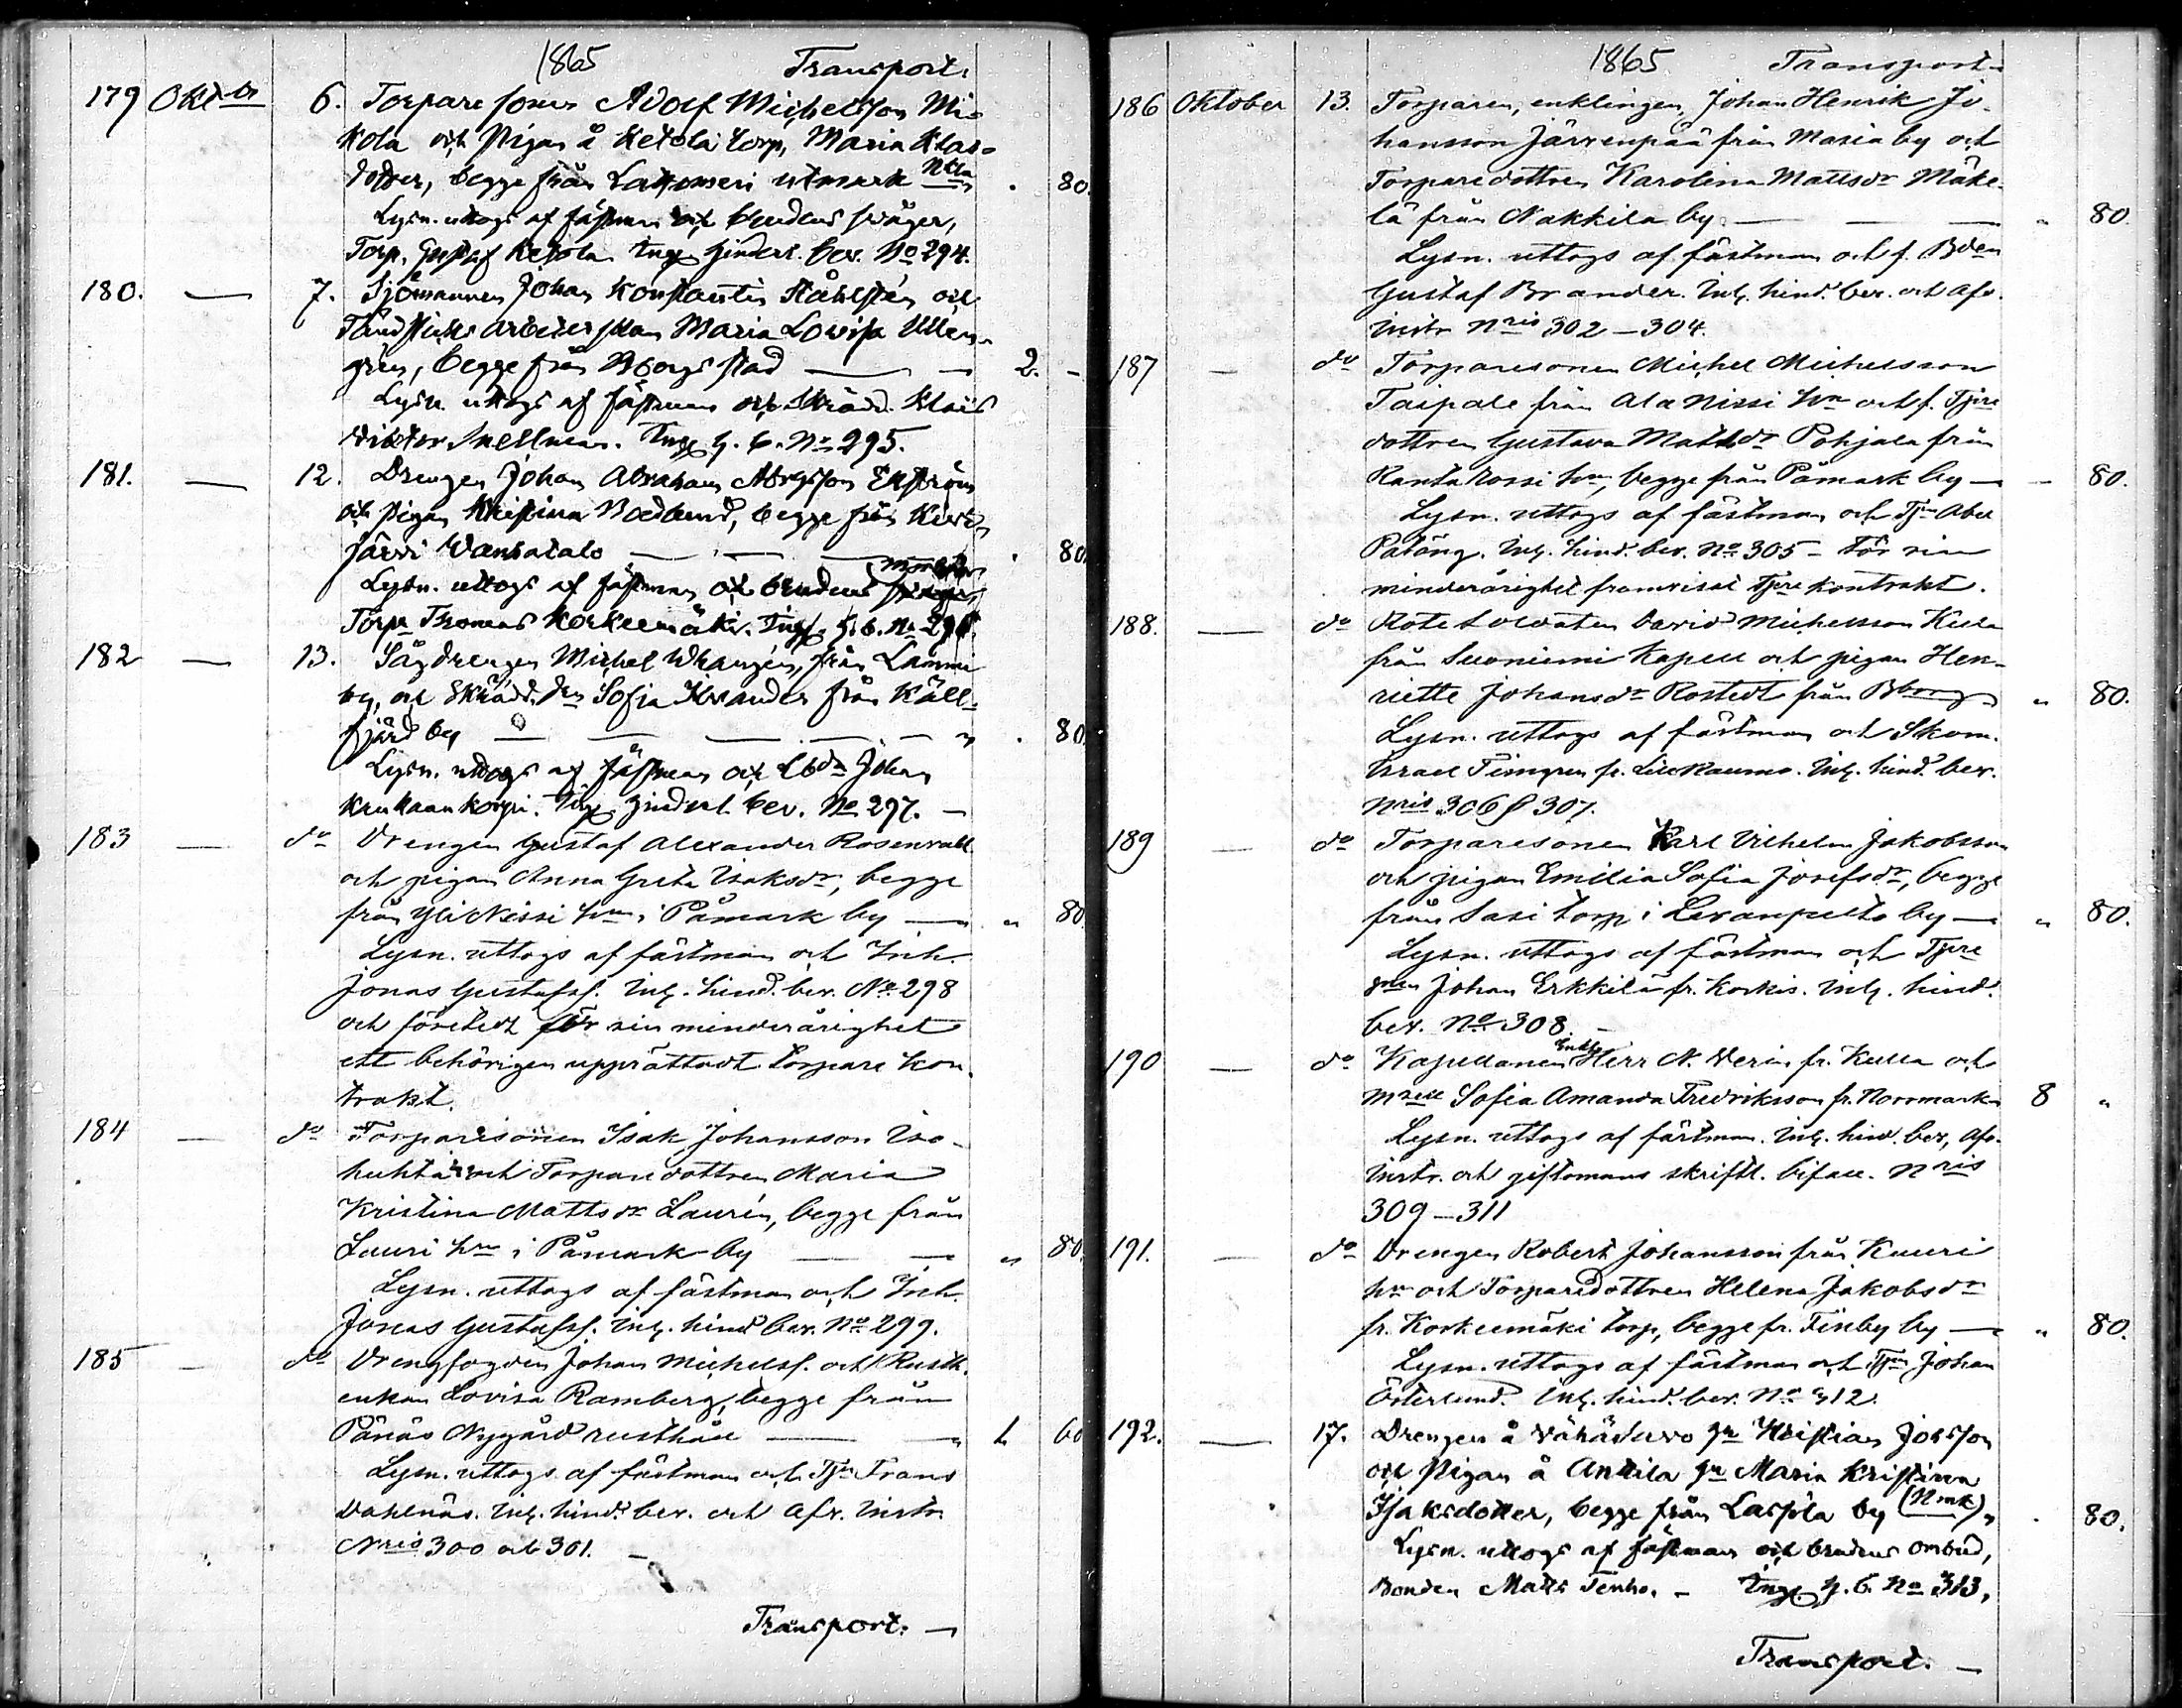 1865 Transport.
179 Oktbr 6. Torpare sonen Adolf Michelsson Mi-
kola och Pigan å Ketola torp, Maria Klas-
dotter, begge från Lattomeri utmark Nkla . 80.
Lysn. uttogs af fästman och brudens svåger,
Torp. Gustaf Ketola. Inga hinderl. bev. No 294.
180. — 7. Sjömannen Johan Konstantin Ståhlstén och
Tändsticks arbeterskan Maria Lovisa Ullen-
gren, begge från Bborgs stad — 2. -
Lysn. uttogs af fästman och Skrädd. Klas
Viktor Snellman. Inga h. b. No 295.
181. — 12. Drengen Johan Abraham Abrgsson Ekström
och pigan Kristina Boedlund, begge från
järvi Vanhatalo — . 80.
Lysn. uttogs af fästman och brudens morbror
Torpn Thomas Korkeemäki. Inga h. b. No 296.
182 — 13. Sågdrengen Michel Wrangén, från Lammi
by, och Skrädd. dn Sofia Ikander från Käll-
fjärd by — . 80.
Lysn. uttogs af fästman och Lbdn Johan
Kruknankorpi. Inga hinderl. bev. No 297. —
183 — do Drengen Gustaf Alexander Rosenvall
och pigan Anna Greta Isaksdr, begge
från Yli Nissi hmn i Påmark by — " 80
Lysn. uttogs af fästman och Inh.
Jonas Gustafss. Ing. hind. bev. No. 298
och företedt för sin minderårighet
ett behörigen upprättadt torpare kon-
trakt.
184 — do Torparesonen Isak Johansson Iso-
huhta och Torparedottren Maria
Kristina Mattsdr Laurén, begge från
Lauri hmn i Påmark by — " 80.
Lysn. uttogs af fästman och Inh.
Jonas Gustafss. Ing. hind. bev. No 299.
185 — do Drengfogden Johan Michelss. och Rusth.
enkan Lovisa Ramberg, begge från
Pänäs Nygård rusthåll — 1 60
Lysn. uttogs af fästman och Tjn Frans
Dahlnäs. Ing. hind. bev. och Afv. Instr.
Nris 300 och 301. —
Transport. —
1865 Transport.
186 Oktober 13. Torparen, enklingen, Johan Henrik Jo-
hansson Järvenpää från Masia by och
Torparedottren Karolina Mattsdr Mäke-
lä från Nakkila by — " 80.
Lysn. uttogs af fästman och f. Bden
Gustaf Brander. Ing. hind. bev. och afv.
instr Nris 302 — 304.
187 — do Torparesonen Michel Michelsson
Taipale från Ala Nissi hmn och f. Tjpre
dottren Gustava Mattsdr Pohjala från
Ranta Rossi hmn, begge från Påmark by — - 80.
Lysn. uttogs af fästman och Tjn Abel
Patäng. Ing. hind. bev. No 305 - för sin
minderårighet framvisat Tjpre kontrakt.
188. — do Rotesoldaten David Michelsson Kula
från Suoniemi Kapell och pigan Hen-
riette Johansdr Rostedt från Bborg " 80.
Lysn. uttogs af fästman och Skom.
Israel Timgren fr. Lill Raumo. Ing. hind. bev.
Nris 306 & 307.
189 — do Torparesonen Karl Vilhelm Jakobsson
och pigan Emilia Sofia Josefsdr, begge
från Sasi torp i Levanpelto by — " 80.
Lysn. uttogs af fästman och Tjpre
Johan Erkkilä fr. Korkis. Ing. hind.
bev. No 308. —
190 — do Kapellanen Enkl. Herr N. Verin fr. Kulla och
Mzell Sofia Amanda Fredriksson fr. Norrmark 8 "
Lysn. uttogs af fästman. Ing. hind. bev, Afv.
instr. och giftomans skriftl. bifall. Nris
309 — 311
191. — do Drengen Robert Johansson från Kauri
hmn och Torparedottren Helena Jakobsdr
fr. Korkeemäki torp, begge fr. Finby by — " 80.
Lysn. uttogs af fästman och Tjn Johan
Österlund. Ing. hind. bev. No 312.
192. — 17. Drengen å Vähätorvo hn Kristian Johsson
och Pigan å Anttila hn Maria Kristina
Isaksdotter, begge från Laspila by (Nmk) . 80.
Lysn. uttogs af fästman och brudens ombud,
Bonden Matts Tenho. - Inga h. b. No 313.
Transport. —